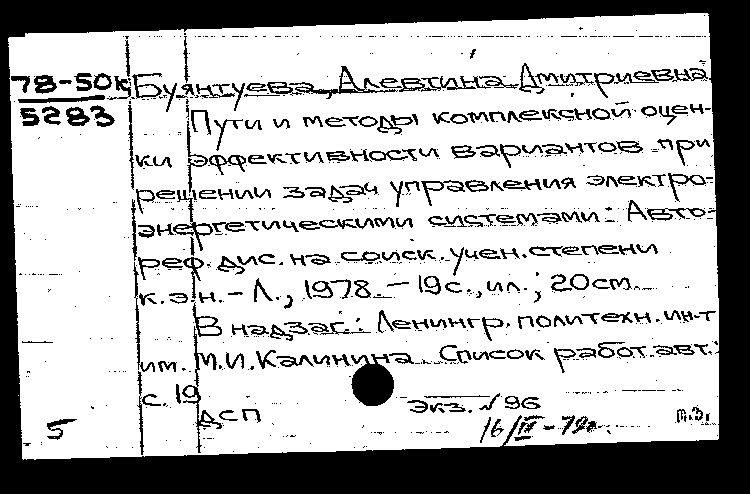 78-50к
5283
Буянтуева, Алевтина Дмитриевна.
Пути и методы комплексной оцен-
ки эффективности вариантов при
решении задач управления электро-
энергетическими системами: Авто-
реф. дис. на соиск. учен. степени
к.э.н. - Л., 1978. - 19с., ил.; 20см.
В надзаг.: Ленингр. политехн. ин-т
им. М.И. Калинина. Список работ авт.:
с. 19
ДСП
Экз. № 96
5